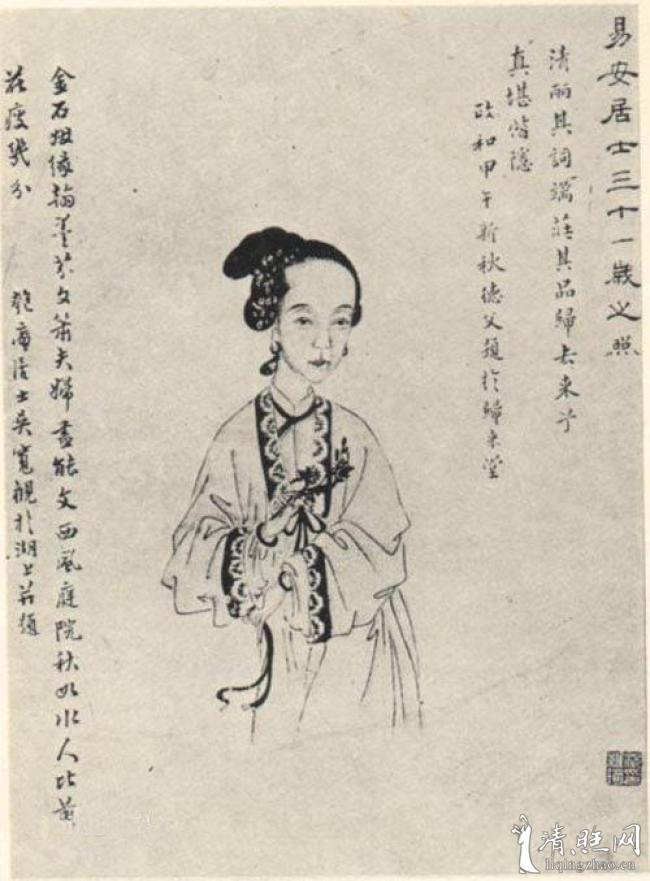 易安居士三十一歲之照
清丽其詞端莊其品歸去來兮
真堪偕隱
政和甲午新秋德父題於歸來堂
金石姻緣翰墨芬文簫夫婦盡能文西風庭院秋如水人比黄
花瘦幾分
匏庵居士吳寬觀於湖上并題
清照网
liqingzhao.cn